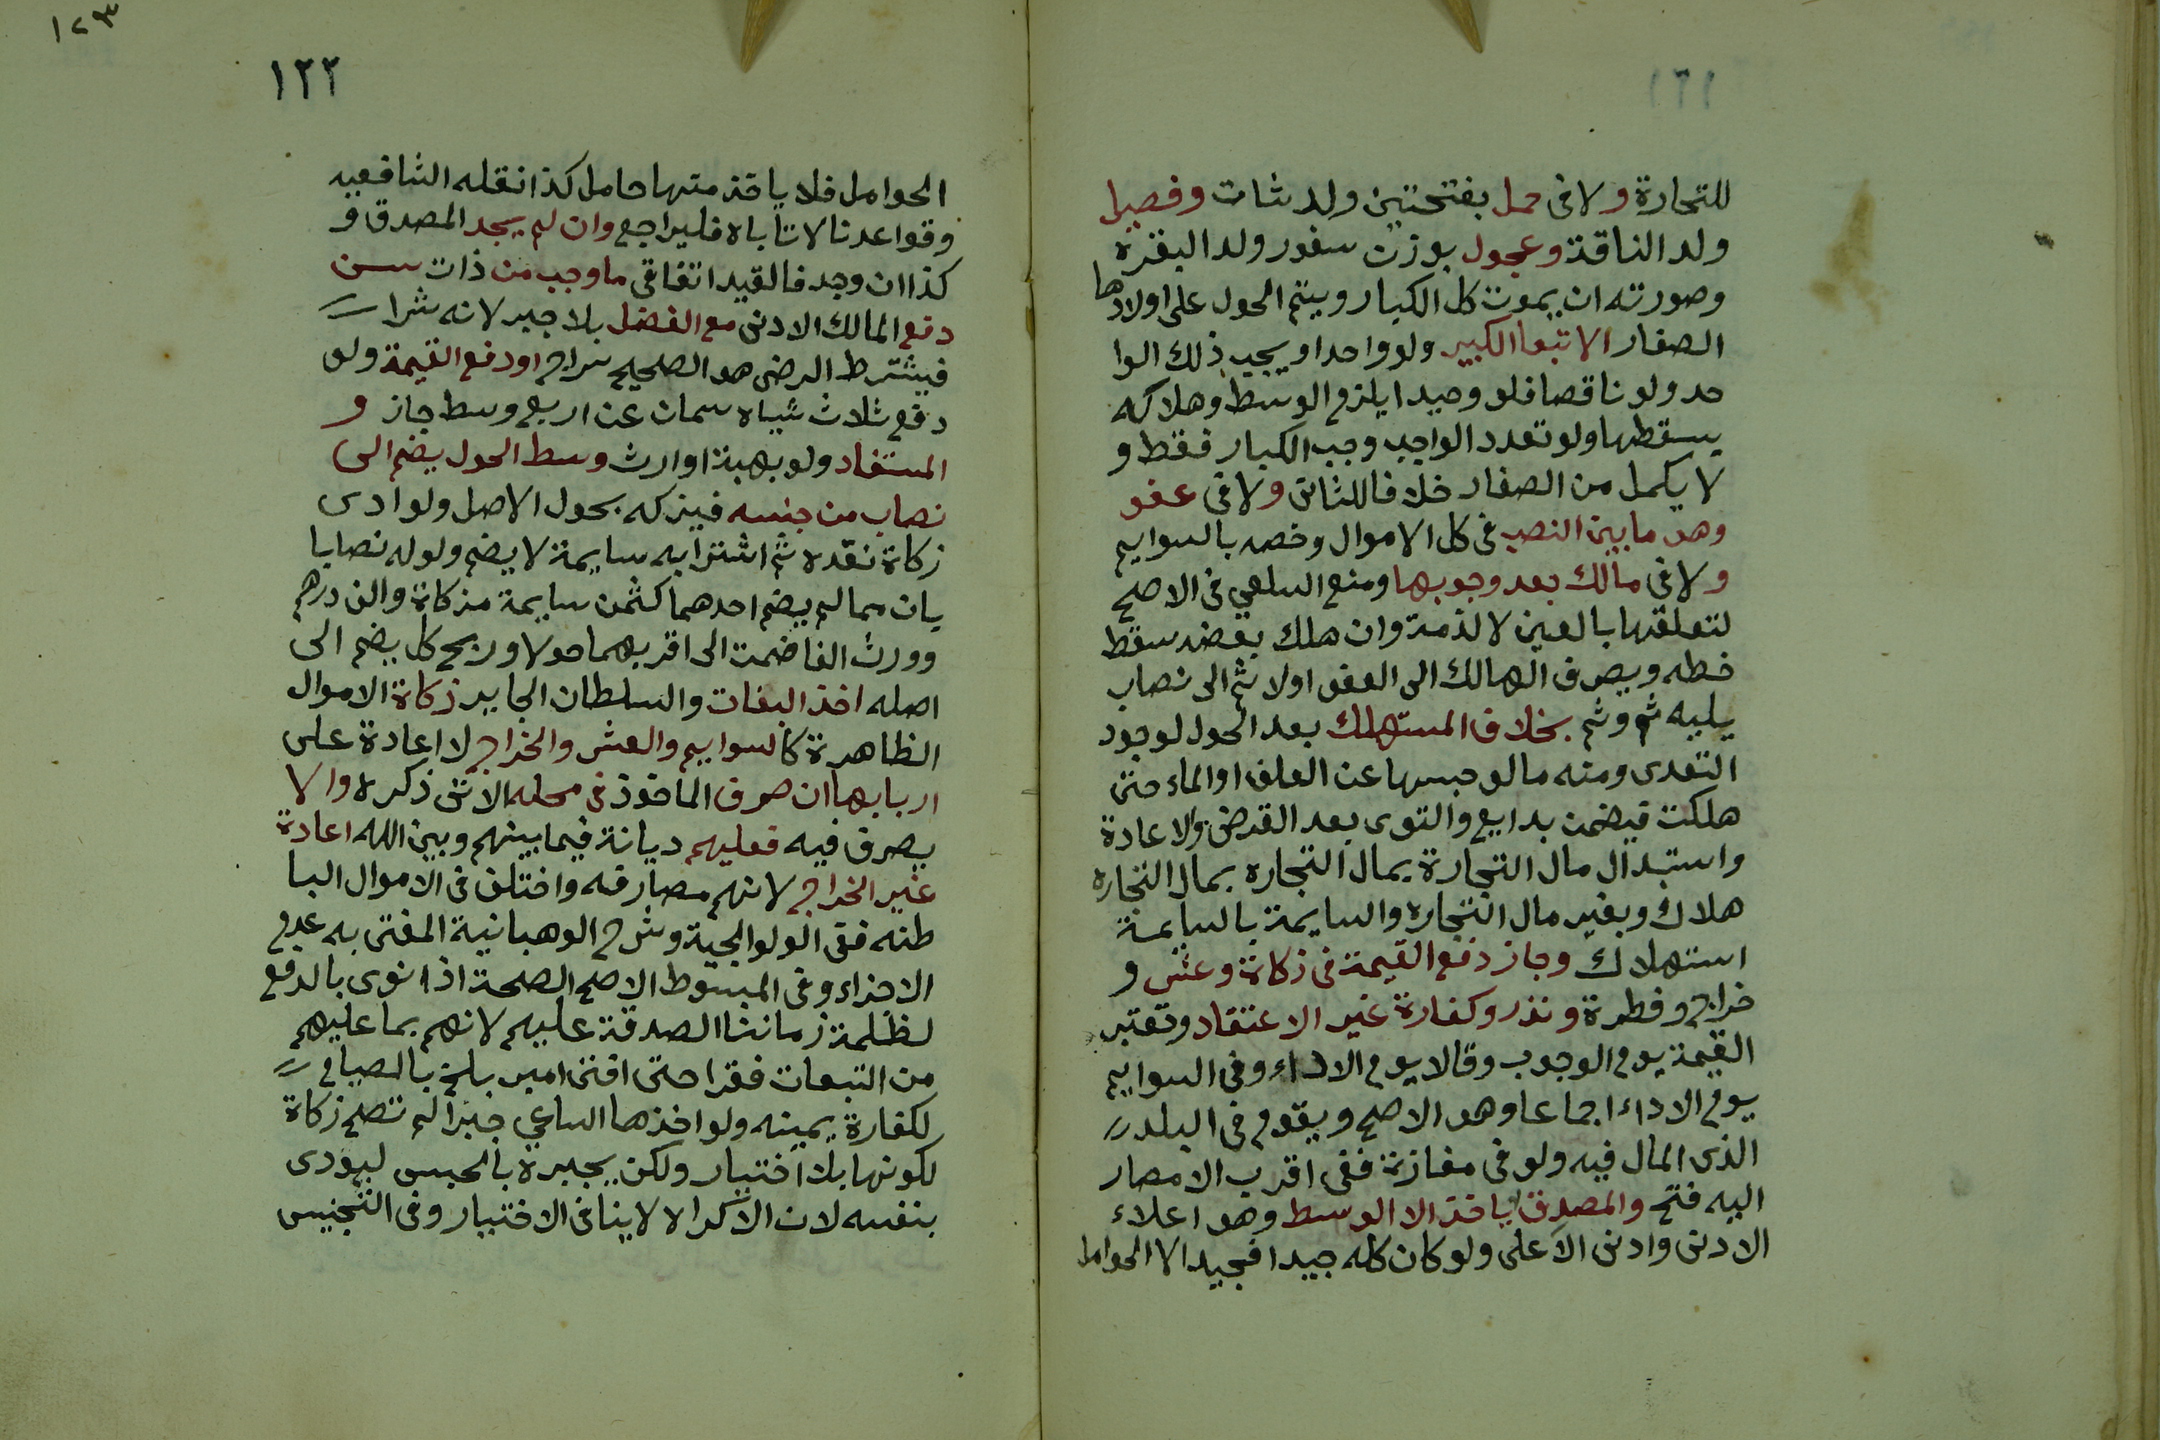 للتجارة ولا فى حمل بفتحتين ولد شات وفصيل
ولد الناقة وعجول بوزن سفور ولد البقرة
وصورته ان يموت كل الكبار ويتم الحول على اولادها
الصغار الا تبعا الكبير ولو واحدا ويجب ذلك الوا
حد ولو ناقصا فلو وجيدا يلزم الوسط وهلاكه
يسقطها ولو تعدد الواجب وجب الكبار فقط و
لا يكمل من الصغار خلافا للثانى ولا فى عفو
وهو ما بين النصب فى كل الاموال وخصه بالسوايم
ولا فى هالك بعد وجوبها ومنع الساعي فى الاصح
لتعلقها بالعين لا الذمة وان هلك بعضه سقط
خطه ويصرف الهالك الى العفو اولا ثم الى نصاب
يليه ثم وثم بخلاف المستهلك بعد الحول لوجود
التعدى ومنه مالو حبسها عن العلف او الماء حتى
هلكت فيضمن بدايع والتوى بعد القرض والاعادة
واستبدال مال التجارة بمال التجاره بمال التجاره
هلاك وبغير مال التجاره والسايمة بالسايمة
استهلاك وجاز دفع القيمة فى زكاة وعشر و
خراج وفطرة ونذر وكفارة غير الاعتقاد وتعتبر
القيمة يوم الوجوب وقالا يوم الاداء وفى السوايم
يوم الاداء اجماعا وهو الاصح ويقوم فى البلد
الذى المال فيه ولو فى مفازة ففى اقرب الامصار
اليه فتح والمصدق ياخذ الا الوسط وهو اعلاء
الادنى وادنى الاعلى ولو كان كله جيدا فجيد الا الحوامل
١٢٣
١٢٢
الحوامل فلا ياخذ منها حامل كذا نقله الشافعيه
وقواعدنا لا تاباه فليراجع وان لم يجد المصدق و
كذا ان وجد فالقيد اتفاقى ما وجب من ذات سن
دفع المالك الادنى مع الفضل بلا جبر لانه شرا
فيشترط الرضى هو الصحيح سراج او دفع القيمة ولو
دفع ثلاث شياه سمان عن اربع وسط جاز و
المستفاد ولو بهبة او ارث وسط الحول يضم الى
نصاب من جنسه فيزكه بحول الاصل ولو ادى
زكاة نقده ثم اشترا به سايمة لا يضم ولو له نصابا
يان مما لم يضم احدهما كثمن سايمة مزكاة والف درهم
وورث الفا ضمت الى اقربهما حولا وربح كل يضم الى
اصله اخذ البغات والسلطان الجاير زكاة الاموال
الظاهرة كالسوايم والعشر والخراج لا اعادة على
اربابها ان صرف الماخوذ فى محله الاتى ذكره والا
يصرف فيه فعليهم ديانة فيما بينهم وبين الله اعادة
غير الخراج لانهم مصارفه واختلف فى الاموال البا
طنه ففى الولوالجية وشرح الوهبانية المفتى به عدم
الاجزاء وفى المبسوط الاصح الصحة اذا نوى بالدفع
لظلمة زماننا الصدقة عليهم لانهم بما عليهم
من التبعات فقرا حتى افتى امير بلخ بالصيام
لكفارة يمينه ولو اخذها الساعي جبرا لم تصح زكاة
لكونها بلا اختيار ولكن يجبره بالحبس ليؤدى
بنفسه لان الاكراه لا ينافى الاختيار وفى التجنيس